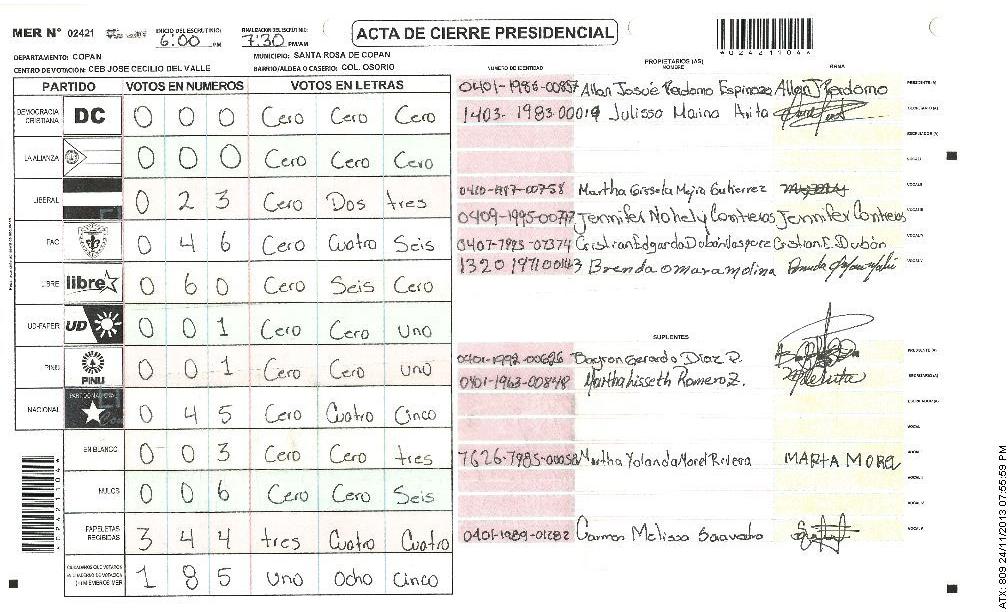 MER N° 02421
INICIO DEL ESCRUTINIO: 6:00 PM
FINALIZACION DEL ESCRUTINIO: 7:30 PM/AM
ACTA DE CIERRE PRESIDENCIAL
*02421104*
DEPARTAMENTO: COPAN
MUNICIPIO: SANTA ROSA DE COPAN
CENTRO DE VOTACIÓN: CEB JOSE CECILIO DEL VALLE
BARRIO/ALDEA O CASERIO: COL. OSORIO
PARTIDO VOTOS EN NUMEROS VOTOS EN LETRAS
DEMOCRACIA CRISTIANA DC 0 0 0 Cero Cero Cero
LA ALIANZA 0 0 0 Cero Cero Cero
LIBERAL 0 2 3 Cero Dos tres
FAC 0 4 6 Cero Cuatro Seis
LIBRE libre 0 6 0 Cero Seis Cero
UD-FAPER UD 0 0 1 Cero Cero uno
PINU PINU 0 0 1 Cero Cero uno
NACIONAL 0 4 5 Cero Cuatro Cinco
EN BLANCO 0 0 3 Cero Cero tres
NULOS 0 0 6 Cero Cero Seis
PAPELETAS RECIBIDAS 3 4 4 tres Cuatro Cuatro
1 8 5 uno ocho cinco
NUMERO DE IDENTIDAD
PROPIETARIOS (AS)
NOMBRE
FIRMA
0401-1986-00857 Allan Josué Perdomo Espinoza Allan J Perdomo PRESIDENTE (A)
1403-1983-00019 Julissa Marina Avita SECRETARIO (A)
ESCRUTADOR (A)
VOCAL I
Martha Gissela Mejia Gutierrez
Jennifer Nohely Contreras Jennifer Contreras
Cristian E. Dubón
Brenda Omara Molina
SUPLENTES
0401-1992-00626 Bayron Gerardo Diaz P. PRESIDENTE (A)
0401-1963-00848 Martha lisseth Romero Z. SECRETARIO (A)
ESCRUTADOR (A)
VOCAL
Martha Yolanda Morel Rivera MARTA MOREL
0401-1989-01282 Carmen Melissa Saavedra
*02421104*
ATX: 809 24/11/2013 07:55:59 PM